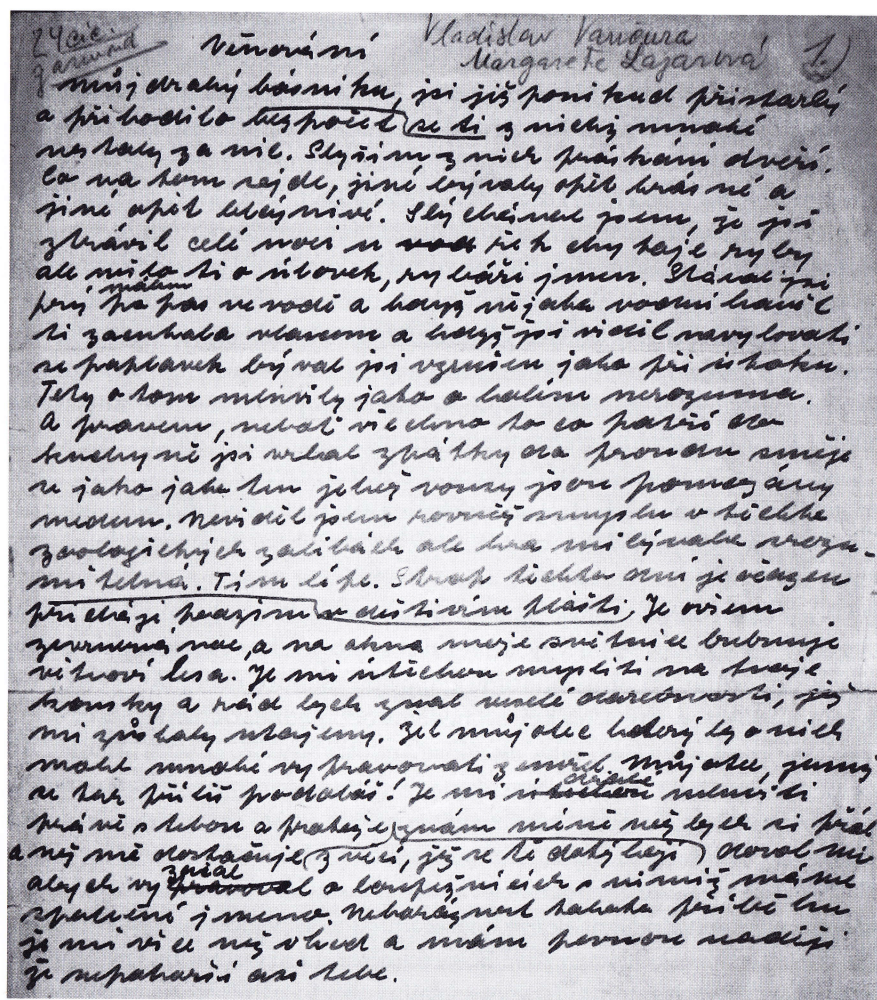 24 cic.
garmond
Vladislav Vančura
Markareta Lazarová
1.)
Věnování
můj drahý básníku, jsi již ponikud přistarlý
a přihodilo bezpočet se ti z nichž mnohé
nestály za nic. Slyším z nich práskání dveří.
Co na tom sejde, jiné bývaly opět krásné a
jiné opět bláznivé. Slýchával jsem, že jsi
ztrávil celé noci u vod řek chytaje ryby
ale milo ti o úlovek, rybáři jmen. Stával jsi
prý málem po pas ve vodě a když nějaká vodní havěť
ti zacukala vlascem a když jsi viděl navylovati
se paplavek býval jsi vzrušen jako při útoku.
Tety o tom mluvily jako o holém nerozumu.
A právem, neboť všechno to co patří do
kuchyně jsi vrhal zpátky do proudu směje
se jako jehož vousy jsou pomazány
medem. Neviděl jsem rovněž smyslu v těchto
zoologických zálibách ale hra mi bývala srozu-
mitelná. Tím lépe. Strop těchto dní je očazen
přichází podzim v deštivém plášti. Je ovšem
noc, a na okna moje světnice bubnuje
větvoví lesa. Je mi útěchou mysliti na tvoje
kousky a rád bych znal veselé darebnosti, jež
mi zůstaly utajeny. Žel můj otec který by o nich
mohl mnohé vypravovati zemřel. Můj otec, jemuž
se tak příliš podobáš! Je mi mluviti
právě s tebou a protože znám méně než bych si přál
a než mě dostačuje z věcí, jež se tě dotýkají doval mi
abych vyzpíval o loupežnících s nimiž máme
společné jméno. Nebezáznost tohoto příběhu
je mi více než vhod a mám pevnou naději
že nepohorší ani tebe.